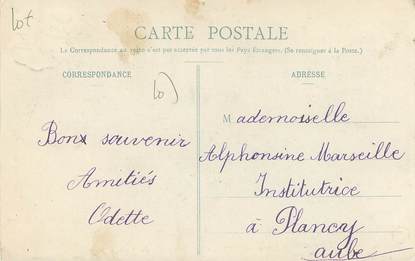 Lot
CARTE POSTALE
La Correspondance au recto n'est pas acceptée par tous les Pays Étrangers. (Se renseigner à la Poste.)
CORRESPONDANCE
ADRESSE
Bons souvenir
Amitiés
Odette
Mademoiselle
Alphonsine Marseille
Institutrice
à Plancy
aube